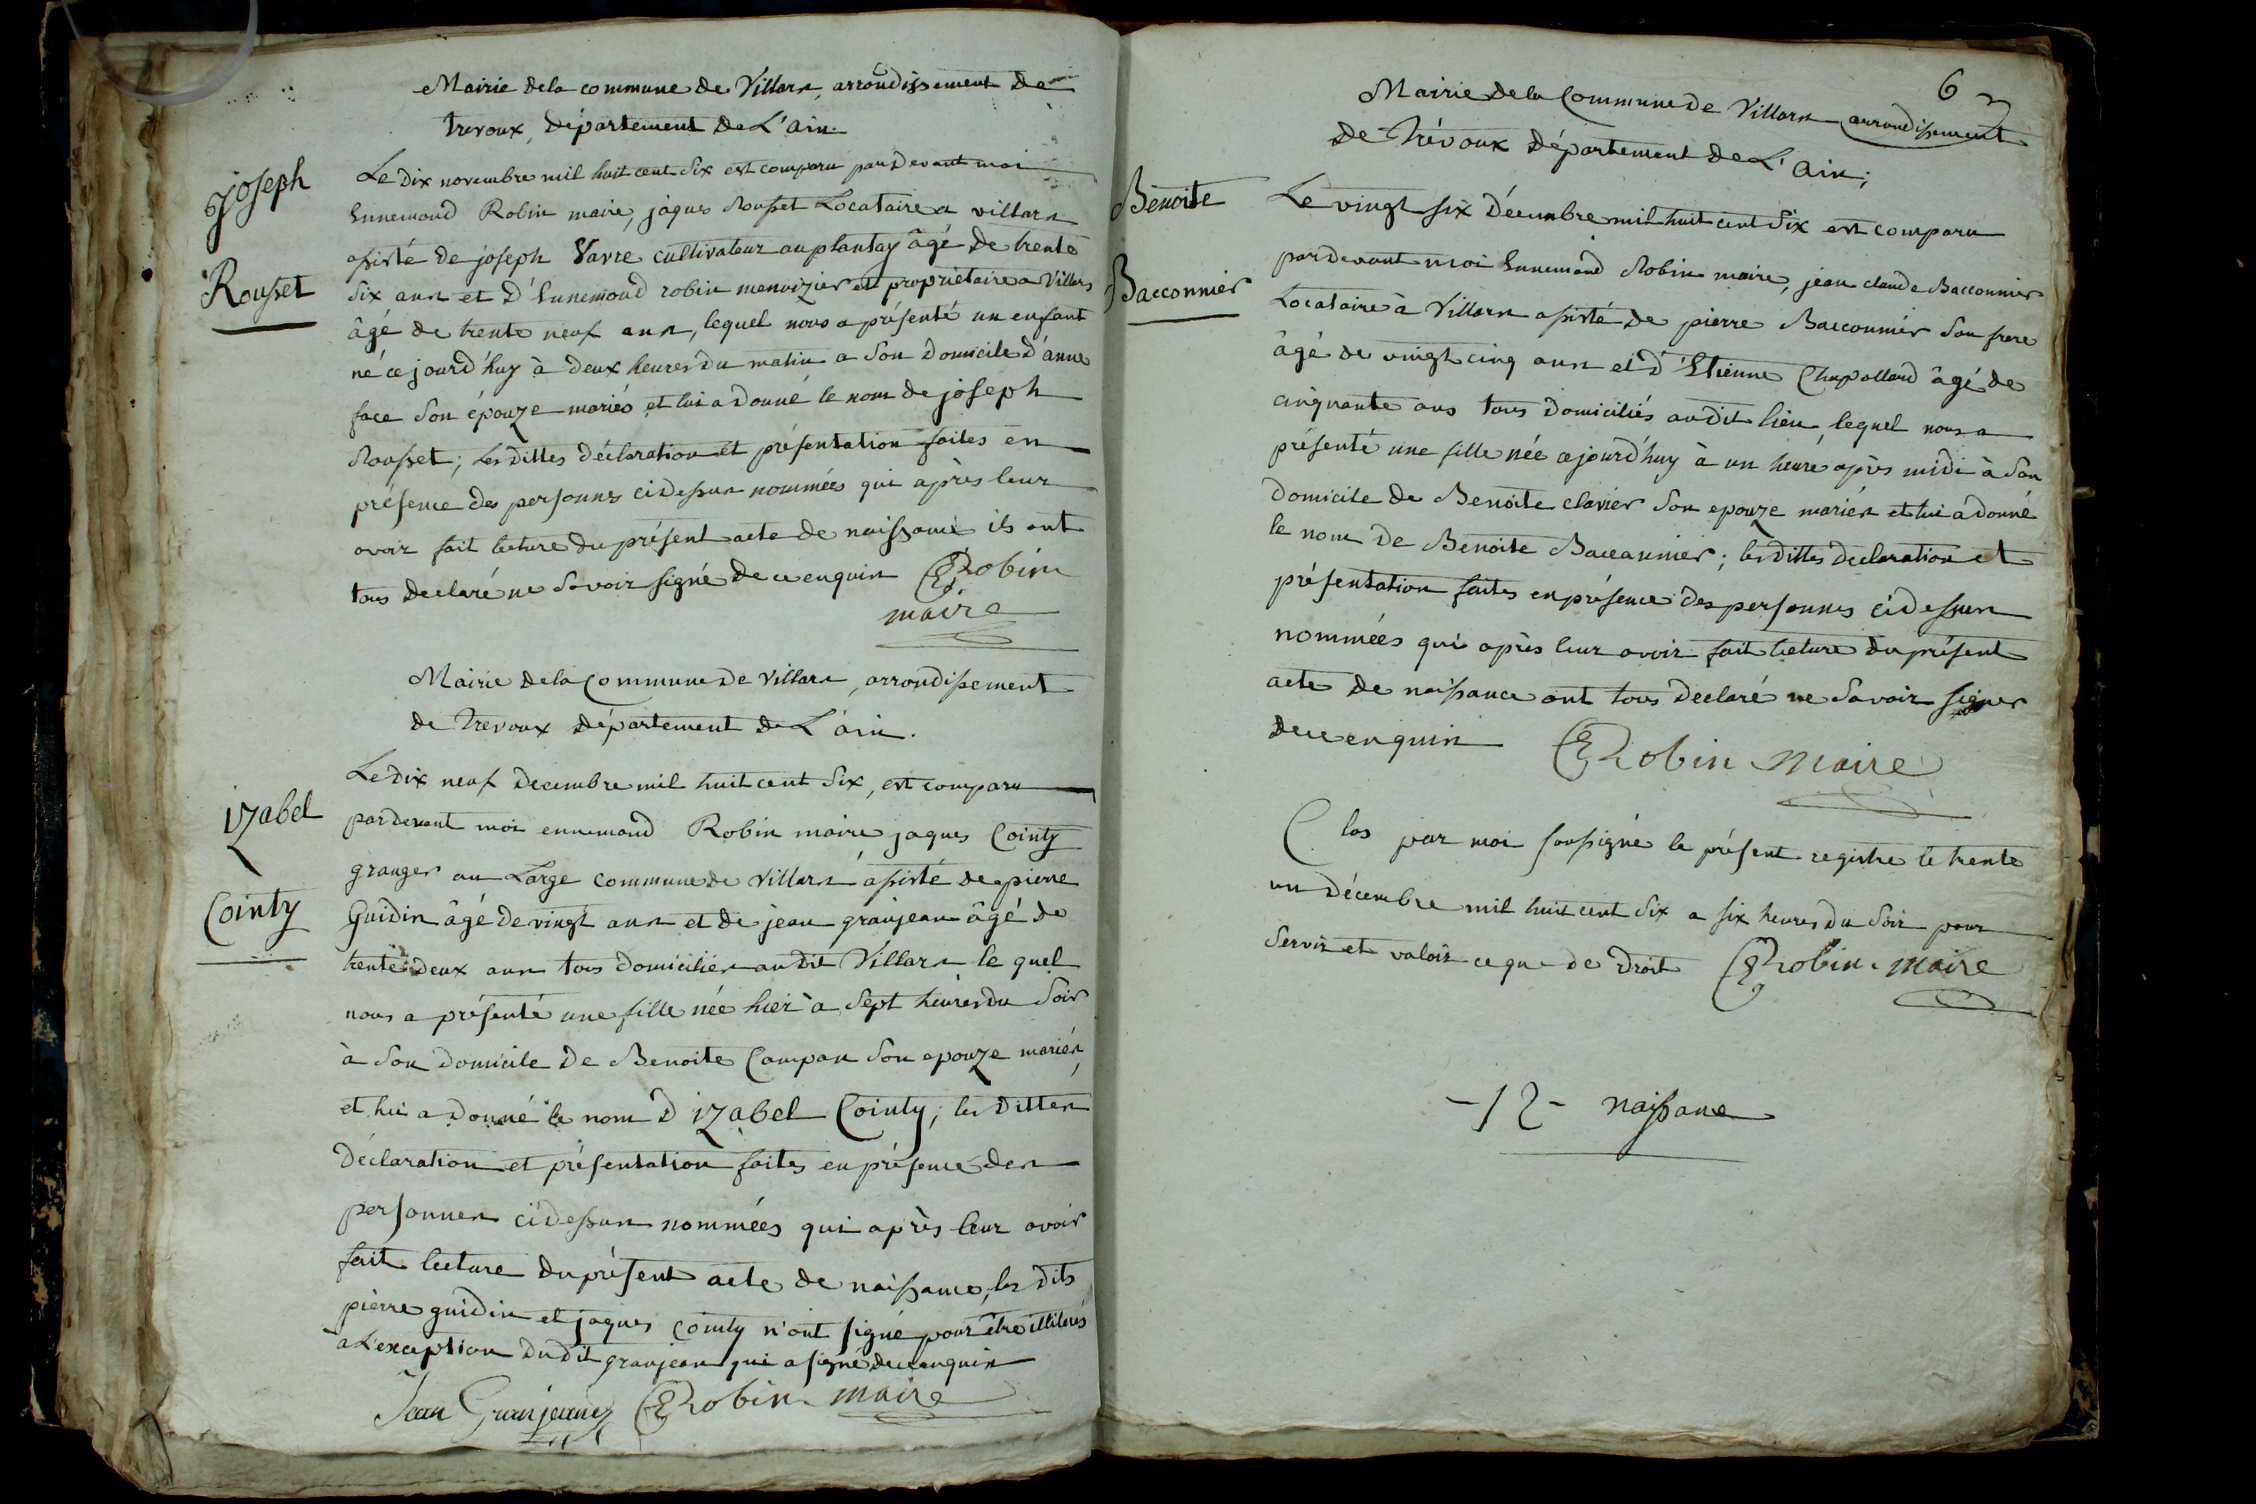 Mairie de la commune de Villars, arrondissement de
trevoux, département de L'ain.
joseph
Rousset
Le dix novembre mil huit cent six est comparu pardevant moi
Ennemond Robin maire, jaques Rousset Locataire a villars
assisté de joseph Varre cultivateur au plantay âgé de trente
six ans et d'Ennemond robin menuizier et propriétaire a Villars
âgé de trente neuf ans, lequel nous a présenté un enfant
né ce jourd'huy à deux heures du matin a son domicile d'anne
face son épouze mariés et lui a donné le nom de joseph
Rousset; les dittes déclaration et présentation faites en
présence des personnes cidessus nommées qui après leur
avoir fait lecture du présent acte de naissance ils ont
tous declaré ne savoir signé de ce enquis ERobin
maire
Mairie de la Commune de Villars, arrondissement
de Trevoux département de L'ain.
izabel
Cointy
Le dix neuf decembre mil huit cent six, est comparu
pardevant moi ennemond Robin maire jaques Cointy
granger au Large commune de Villars assisté de pierre
Guidin âgé de vingt ans et de jean granjean âgé de
trente deux ans tous domiciliés audit Villars le quel
nous a présenté une fille née hier à sept heures du soir
à son domicile de Benoite Campan son epouze mariés,
et lui a donné le nom d'izabel Cointy; les dittes
déclaration et présentation faites en présence des
personnes cidessus nommées qui après leur avoir
fait lecture du présent acte de naissance, les dits
pierre guidin et jaques cointy n'ont signé pour être illiterés
a L'exception dudit granjean qui a signé de ce enquis
Jean Granjean ERobin maire
6
Mairie de la Commune de Villars arrondissement
de Trévoux département de L'ain;
Benoite
Bacconnier
Le vingt six décembre mil huit cent six est comparu
pardevant moi Ennemond Robin maire, jean claude Bacconnier
Locataire à Villars assisté de pierre Bacconnier son frere
âgé de vingt cinq ans et d'Etienne Chapolard âgé de
cinquante ans tous domiciliés audit lieu, lequel nous a
présenté une fille née cejourd'huy à un heure après midi à son
domicile de Benoite clavier son epouze mariés et lui a donné
le nom de Benoite Bacconnier; les dittes declaration et
présentation faites en présence des personnes cidessus
nommées qui après leur avoir fait lecture du présent
acte de naissance ont tous declaré ne savoir signer
de ce enquis ERobin Maire
Clos par moi soussigné le présent registre le trente
un décembre mil huit cent six a six heures du soir pour
servir et valoir ce que de droit ERobin maire
- 12 - naissance